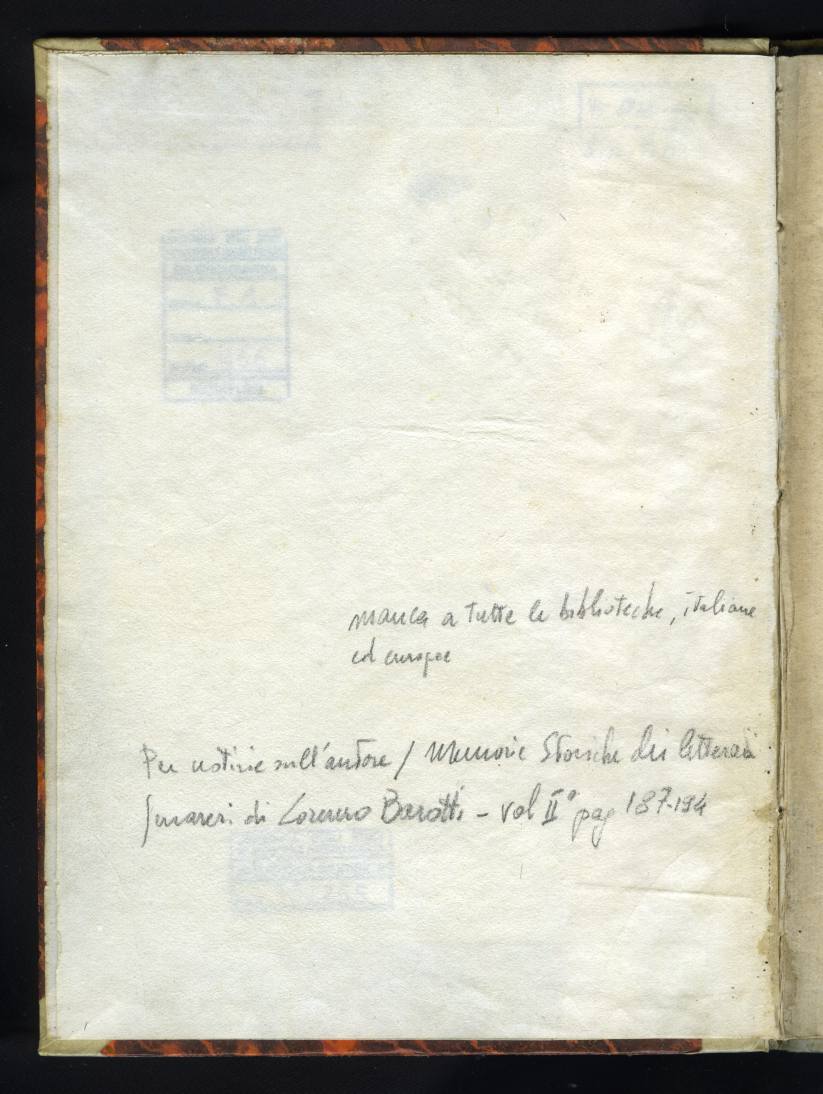 manca a tutte le biblioteche, italiane
ed europee
Per notizie sull'autore / Memorie Storiche dei letterati
ferraresi di Lorenzo Barotti - vol II° pag 187-194